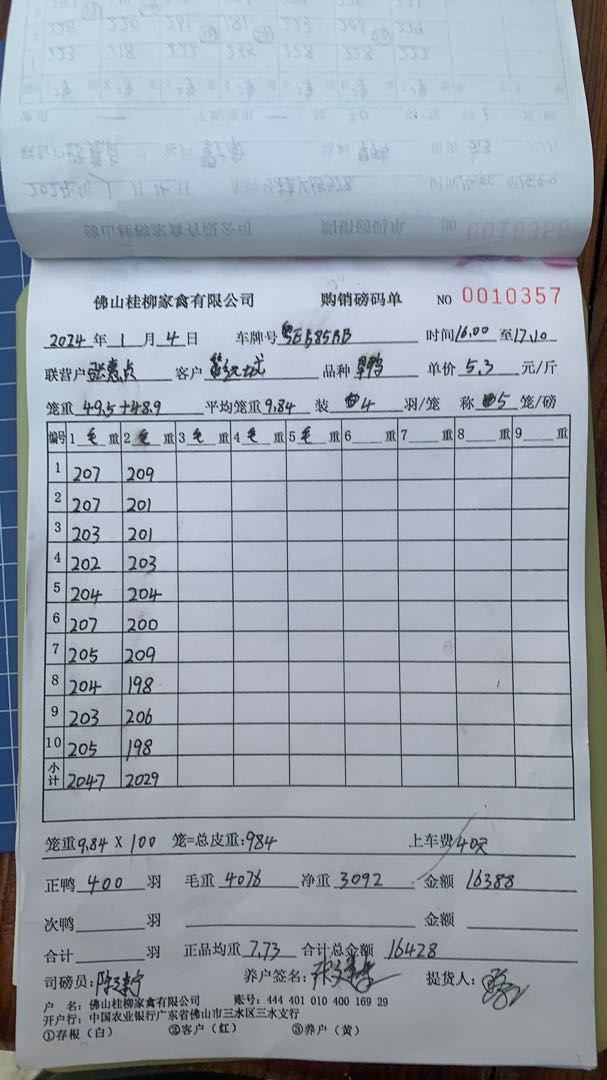 佛山桂柳家禽有限公司 购销磅码单 NO 0010357
2024 年 1 月 4 日 车牌号 粤E585AB 时间 16.00 至 17.10
联营户 客户 品种 单价 5.3 元/斤
笼重 49.5+48.9 平均笼重 9.84 装 4 羽/笼 称 5 笼/磅
编号 1 毛 重 2 毛 重 3 毛 重 4 毛 重 5 毛 重 6 重 7 重 8 重 9 重
1 207 209
2 207 201
3 203 201
4 202 203
5 204 204
6 207 200
7 205 209
8 204 198
9 203 206
10 205 198
小计 2047 2029
笼重 9.84 X 100 笼=总皮重: 984 上车费 40
正鸭 400 羽 毛重 4076 净重 3092 金额 16388
次鸭 羽 金额
合计 羽 正品均重 7.73 合计总金额 16428
司磅员: 养户签名: 提货人:
户 名: 佛山桂柳家禽有限公司 账号: 444 401 010 400 169 29
开户行: 中国农业银行广东省佛山市三水区三水支行
①存根(白) ②客户(红) ③养户(黄)